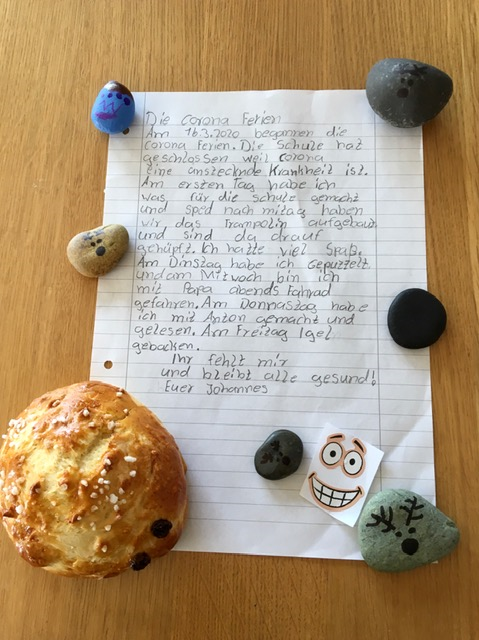 Die Corona Ferien
Am 16.3.2020 begannen die
Corona Ferien. Die Schule hat
geschlossen weil Corona
eine ansteckende Krankheit ist.
Am ersten Tag habe ich
was für die Schule gemacht
und sped nach mitag haben
wir das Trampolin aufgebaut
und sind da drauf
gehüpft. Ich hatte viel Spaß.
Am Dinstag habe ich Gepuzzelt.
und am Mitwoch bin ich
mit Papa abends Fahrad
gefahren. Am Donnastag habe
ich mit Anton gemacht und
gelesen. Am Freitag Igel
gebacken.
Ihr fehlt mir
und bleibt alle gesund!
Euer Johannes